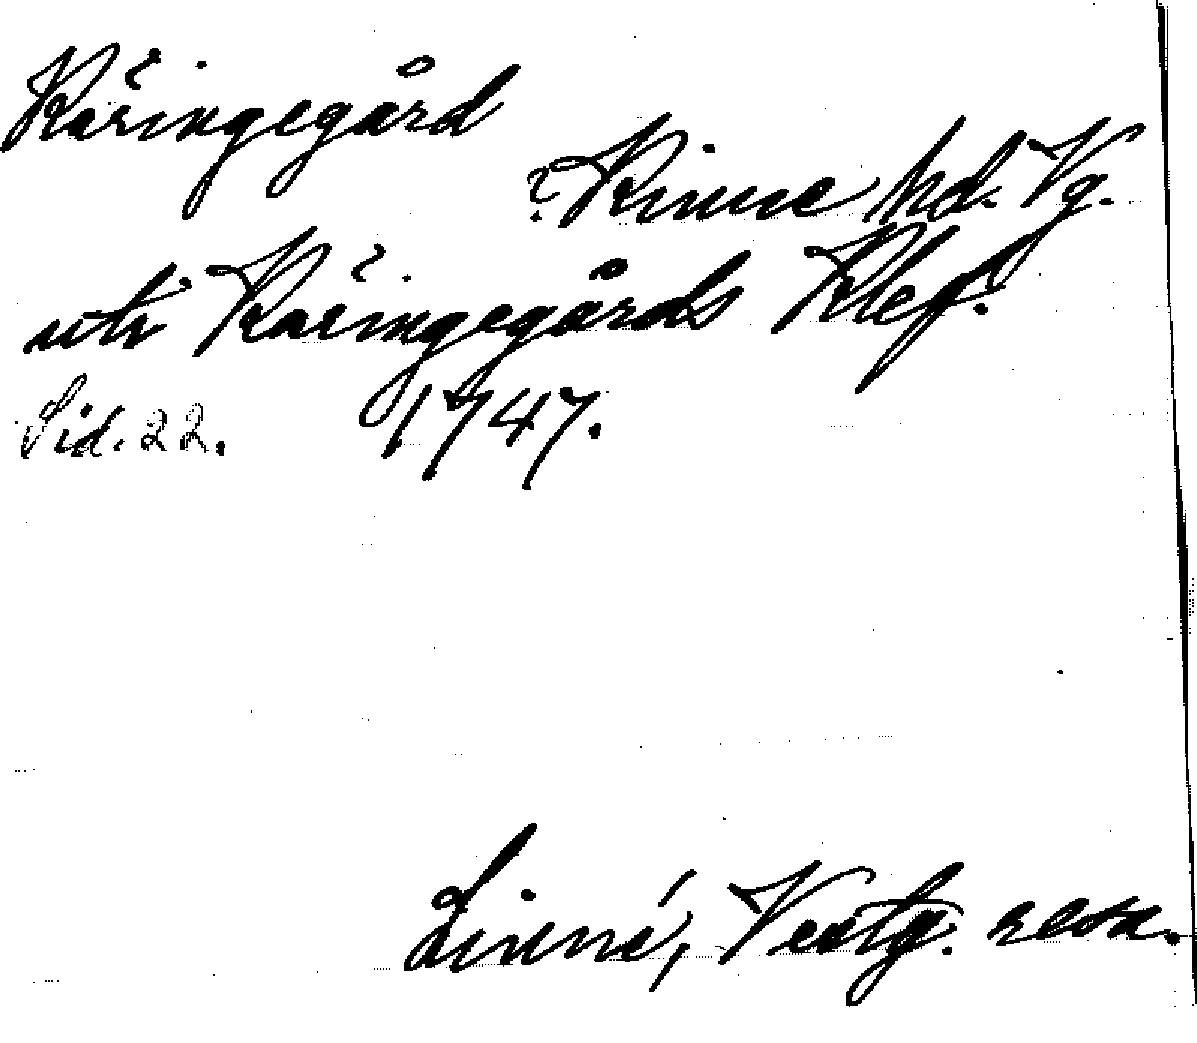 Käringegård
? Kinne hd. Vg.
uti Käringegårds Klef.
Sid. 22. 1747.
Linné, Vestg. resa.